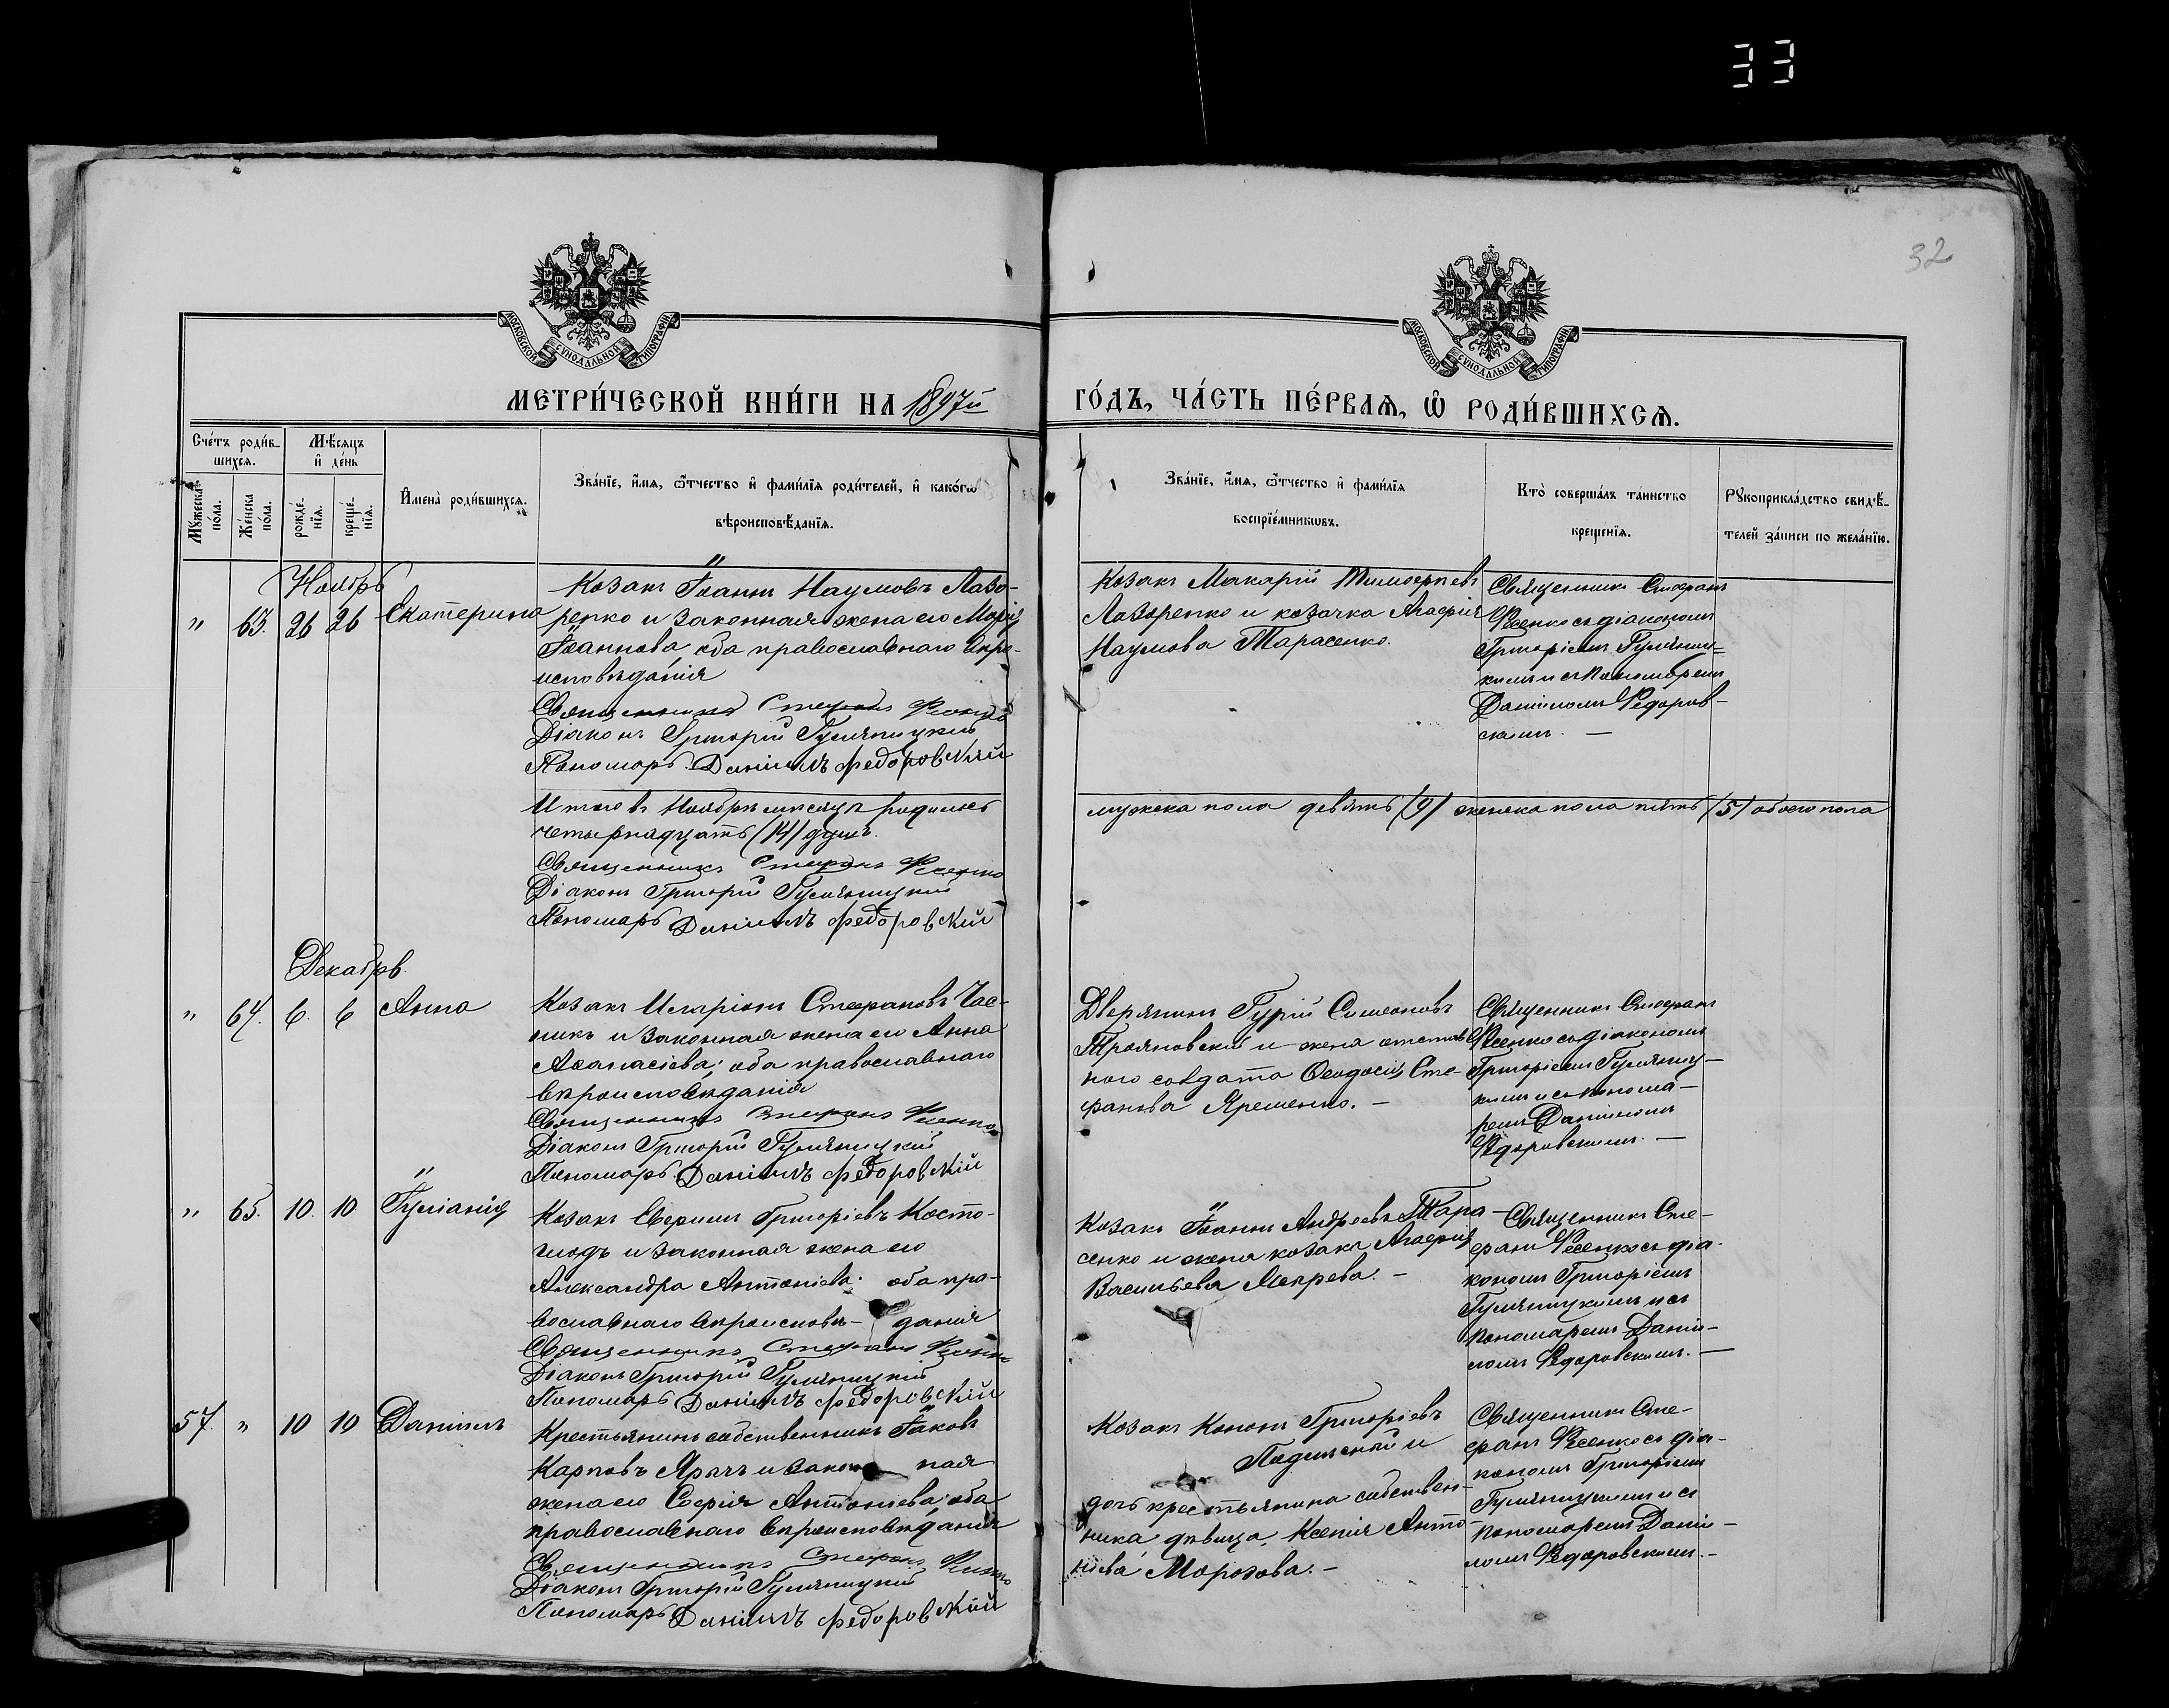 33
32
МОСКОВСКОЙ СУНОДАЛЬНОЙ ТИПОГРАФІИ
МОСКОВСКОЙ СУНОДАЛЬНОЙ ТИПОГРАФІИ
МЕТРИ́ЧЕСКОЙ КНИ́ГИ НА 1897й
ГО́ДЪ, ЧА́СТЬ ПЕ́РВАѦ, Ѡ РОДИ́ВШИХСѦ.
Сче́тъ роди́в-
шихсѧ.
Мѣ́сѧцъ
и҆ де́нь
Мꙋ́жеска по́ла.
Же́нска по́ла.
рожде́-
нїѧ.
креще́-
нїѧ.
И҆мена̀ роди́вшихсѧ.
Зва́нїе, и҆́мѧ, ѻ҆́тчество и҆ фами́лїѧ роди́телей, и҆ како́гѡ
вѣроисповѣ́данїѧ.
Зва́нїе, и҆́мѧ, ѻ҆́тчество и҆ фами́лїѧ
воспрїе́мникѡвъ.
Кто̀ соверша́лъ та́инство
креще́нїѧ.
Рꙋкоприкла́дство свидѣ́-
телей за́писи по жела́нїю.
Ноябрь
" 63. 26 26 Екатерина
Козакъ Іоаннъ Наумовъ Лазо-
ренко и законная жена его Марія
Іоаннова, оба православнаго вѣро-
исповѣданія
Священникъ Стефанъ Фесенко
Діаконъ Григорій Гуляницкій
Пономарь Даніилъ Федоровскій
Козакъ Макарій Тимофеевъ
Лазоренко и козачка Агафія
Наумова Тарасенко.
Священникъ Стефанъ
Фесенко съ діакономъ
Григоріемъ Гуляниц=
кимъ и съ пономаремъ
Даніиломъ Федоров-
скимъ. —
Итого въ Ноябрѣ мѣсяцѣ родилось
мужеска пола девять (9) женска пола пять (5) обоего пола
четырнадцать (14) душъ.
Священникъ Стефанъ Фесенко
Діаконъ Григорій Гуляницкій
Пономарь Даніилъ Федоровскій
Декабрь
" 64. 6. 6 Анна
Козакъ Иларіонъ Стефановъ Час-
никъ и законная жена его Анна
Аѳанасіева; оба православнаго
вѣроисповѣданія
Священникъ Стефанъ Фесенко
Діаконъ Григорій Гуляницкій
Пономарь Даніилъ Федоровскій
Дворянинъ Гурій Симеоновъ
Трояновскій и жена отстав-
ного солдата Ѳеодосія Сте-
фанова Яременко. —
Священникъ Стефанъ
Фесенко съ діакономъ
Григоріемъ Гуляниц-
кимъ и съ понома-
ремъ Даніиломъ
Федоровскимъ. —
" 65. 10. 10. Іуліанія
Козакъ Евфимъ Григоріевъ Косто-
глодъ и законная жена его
Александра Антоніева; оба пра-
вославнаго вѣроисповѣ-данія
Священникъ Стефанъ Фесенко
Діаконъ Григорій Гуляницкій
Пономарь Даніилъ Федоровскій
Козакъ Іоаннъ Андреевъ Тара-
сенко и жена козака Агафія
Васильева
Священникъ Сте-
фанъ Фесенко съ діа-
кономъ Григоріемъ
Гуляницкимъ и съ
пономаремъ Даніи-
ломъ Федоровскимъ. —
57. " 10 10 Даніилъ
Крестьянинъ собственникъ Іаковъ
Карповъ и закон ная
жена его Софія Антоніева; оба
православнаго вѣроисповѣданія
Священникъ Стефанъ Фесенко
Діаконъ Григорій Гуляницкій
Пономарь Даніилъ Федоровскій
Козакъ Кононъ Григоріевъ
и
дочь крестьянина собствен-
ника дѣвица, Ксенія Анто-
ніева Морозова. —
Священникъ Сте-
фанъ Фесенко съ діа-
кономъ Григоріемъ
Гуляницкимъ и съ
пономаремъ Даніи-
ломъ Федоровскимъ. —